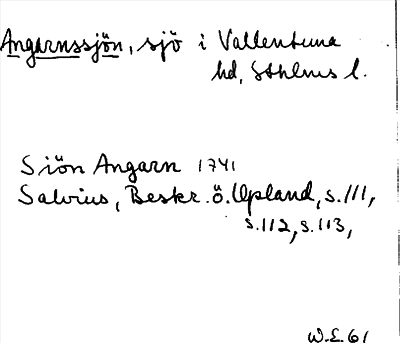 Angarnssjön, sjö i Vallentuna
hd, Sthlms l.
Siön Angarn 1741
Salvius, Beskr. ö. Upland, s. 111,
s. 112, s. 113,
W.E. 61